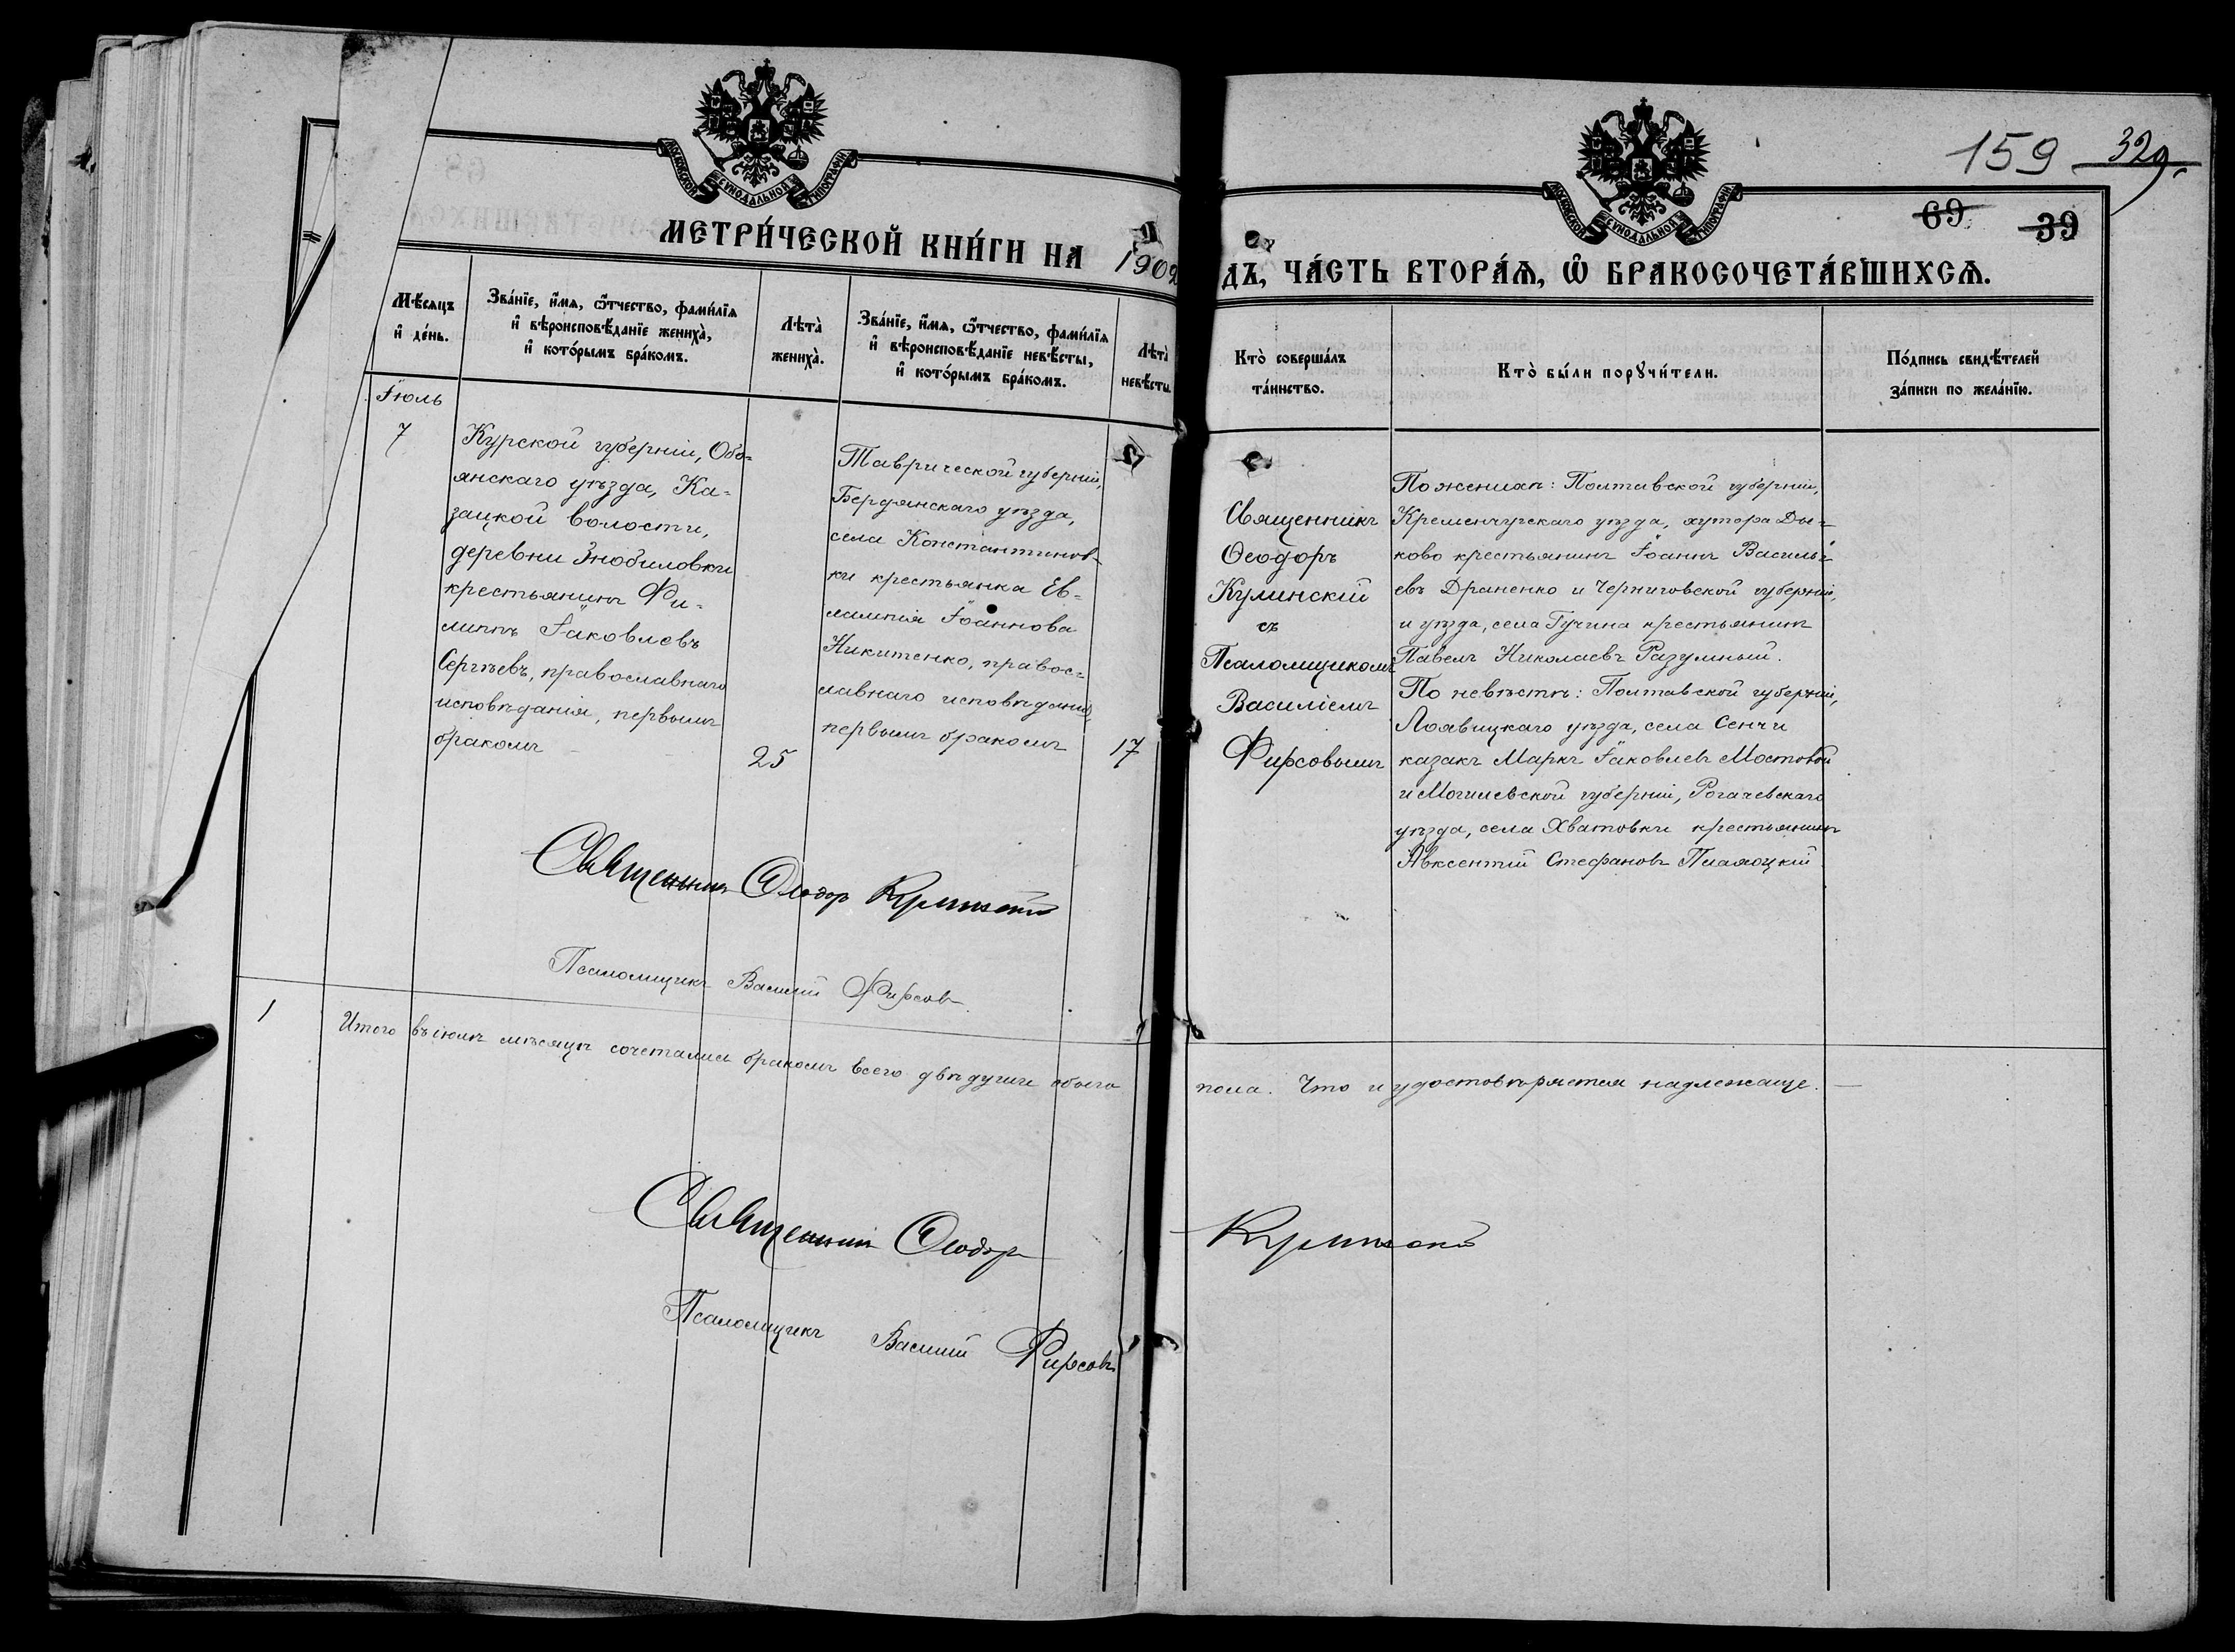 159 329
69 39
МОСКОВСКОЙ СѴНОДАЛЬНОЙ ТИПОГРАФІИ
МОСКОВСКОЙ СѴНОДАЛЬНОЙ ТИПОГРАФІИ
МЕТРИ́ЧЕСКОЙ КНИ́ГИ НА 1902
ДЪ, ЧА́СТЬ ВТОРА́Ѧ, Ѽ БРАКОСОЧЕТА́ВШИХСѦ.
Мѣ́сѧцъ
и҆ де́нь.
Зва́нїе, и҆́мѧ, ѻ҆́тчество, фами́лїѧ
и҆ вѣроисповѣ́данїе жениха̀,
и҆ кото́рымъ бра́комъ.
Лѣта̀
жениха̀.
Зва́нїе, и҆́мѧ, ѻ҆́тчество, фами́лїѧ
и҆ вѣроисповѣ́данїе невѣ́сты,
и҆ кото́рымъ бра́комъ.
Лѣта̀
невѣ́сты.
Кто̀ соверша́лъ
та́инство.
Кто̀ бы́ли порꙋчи́тели.
По́дпись свидѣ́телей
за́писи по жела́нїю.
Іюль
7
Курской губерніи, Обо-
янскаго уѣзда, Ка-
зацкой волости,
деревни Знобиловки
крестьянинъ Фи-
липпъ Іаковлевъ
Сергѣевъ, православнаго
исповѣданія, первымъ
бракомъ
25
Таврической губерніи,
Бердянскаго уѣзда,
села Константинов-
ки крестьянка Ев-
лампія Іоаннова
Никитенко, правос-
лавнаго исповѣданія,
первымъ бракомъ
17
Священникъ
Ѳеодоръ
Кулинскій
съ
Псаломщикомъ
Василіемъ
Фирсовымъ
По женихѣ: Полтавской губерніи,
Кременчугскаго уѣзда, хутора Ды-
ково крестьянинъ Іоаннъ Василь-
евъ Драненко и Черниговской губерніи,
и уѣзда, села Гучина крестьянинъ
Павелъ Николаевъ Разумный.
По невѣстѣ: Полтавской губерніи,
Лохвицкаго уѣзда, села Сенчи
казакъ Маркъ Іаковлевъ Мостовой
и Могилевской губерніи, Рогачевскаго
уѣзда, села Хватовки крестьянинъ
Авксентій Стефановъ
Священникъ Ѳеодоръ Кулинскій
Псаломщикъ Василій Фирсовъ.
1
Итого въ іюлѣ мѣсяцѣ сочетались бракомъ всего двѣ души обоего
пола. Что и удостовѣряется надлежаще.
Священникъ Ѳеодоръ Кулинскій
Псаломщикъ Василій Фирсовъ